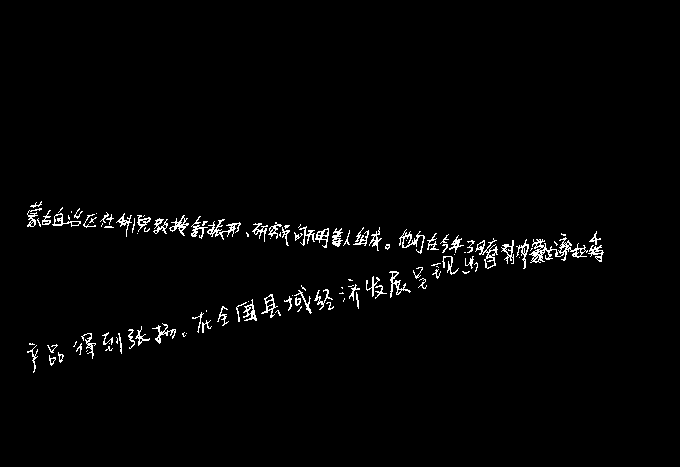 蒙古自治区社科院教授舒振邦、研究员明等人组成。他们在今年3月在对内蒙古
产品得到张扬。在全国县域经济发展呈现出百